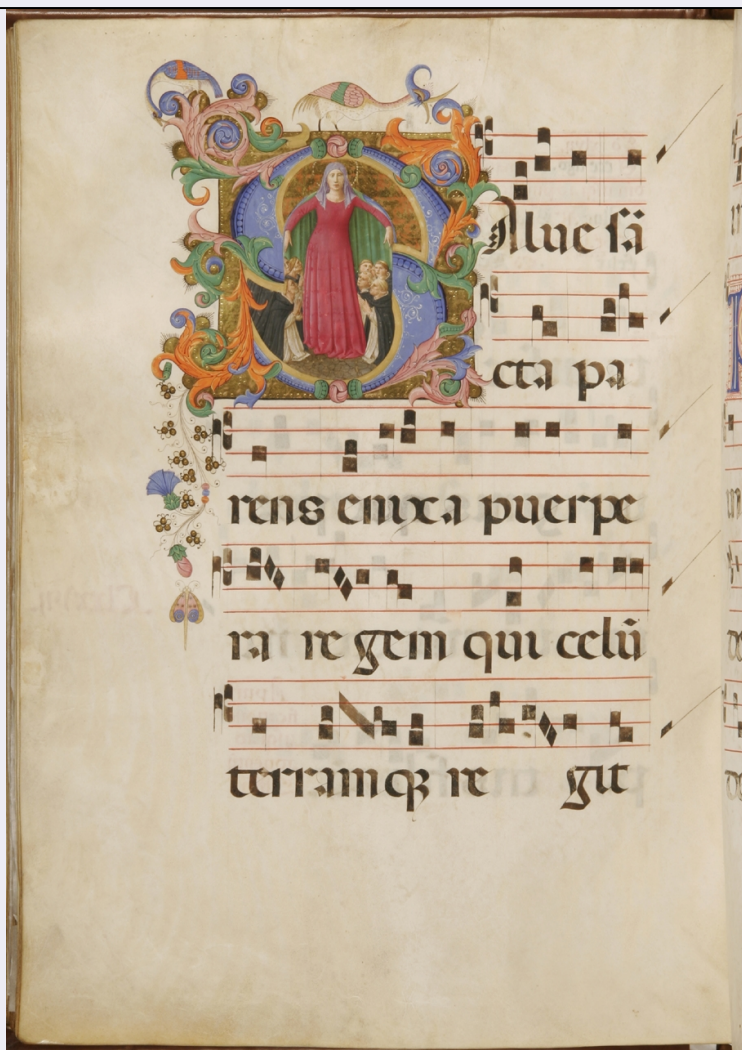 SAlue sã
cta pa
rens enixa puerpe
ra re gem qui celũ
terramqꝫ re git